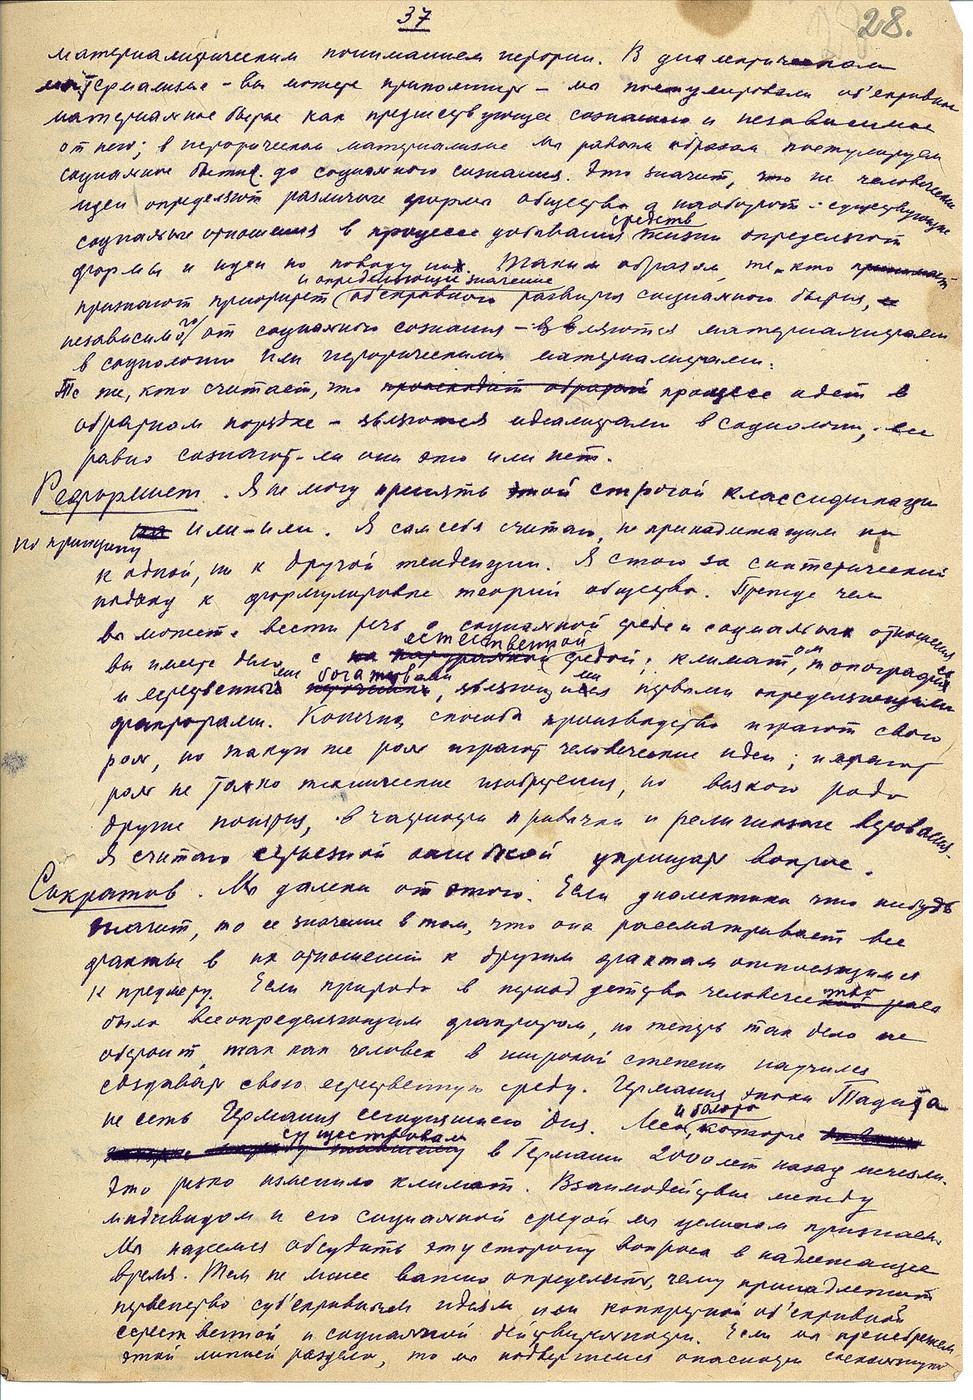 37
28.
материалистическим пониманием истории. В диалектическом
материализме - вы можете припомнить - мы постулировали объективное
материальное бытие как предшествующее сознанию и независимое
от него; в историческом материализме мы равным образом постулируем
социальное бытие до социального сознания. Это значит, что не человеческие
идеи определяют различные формы общества, а наоборот - существующие
социальные отношения в процессе добывания средств жизни определяют
формы и идеи по поводу их. Таким образом, те, кто
признают приоритет и определяющее значение объективного развития социального бытия,
независимого от социального сознания - являются материалистами
в социологии или историческими материалистами.
Те же, кто считает, что происходит обратной процесс идет в
обратном порядке - являются идеалистами в социологии, все
равно сознают-ли они это или нет.
Реформист. Я не могу принять этой строгой классификации
по принципу или-или. Я сам себя считаю, не принадлежащим ни
к одной, ни к другой тенденции. Я стою за синтетический
подход к формулировке теорий общества. Прежде чем
вы можете вести речь о социальной среде и социальных отношениях
вы имеете дело с естественной средой; климатом, топографией
и естественными богатствами, являющимися первыми определяющими
факторами. Конечно, способы производства играют свою
роль, но такую же роль играют человеческие идеи; играют
роль не только технические изобретения, но всякого рода
другие понятия, в частности привычки и религиозные верования.
Я считаю серьезной ошибкой упрощать вопрос.
Сократов. Мы далеки от этого. Если диалектика что нибудь
значит, то ее значение в том, что она рассматривает все
факты в их отношении к другим фактам относящимся
к предмету. Если природа в период детства человечества
была всеопределяющим фактором, но теперь так дело не
обстоит, так как человек в широкой степени научился
создавать свою естественную среду. Германия эпохи Тацита
не есть Германия сегодняшнего дня. Леса и болота, которые
существовали в Германии 2000 лет назад исчезли.
Это резко изменило климат. Взаимодействие между
индивидом и его социальной средой мы целиком признаем.
Мы надеемся обсудить эту сторону вопроса в надлежащее
время. Тем не менее важно определить, чему принадлежит
первенство субъективным идеям или конкретной объективной
естественной и социальной действительности. Если мы пренебрежем
этой линией раздела, то мы подвергнемся опасности